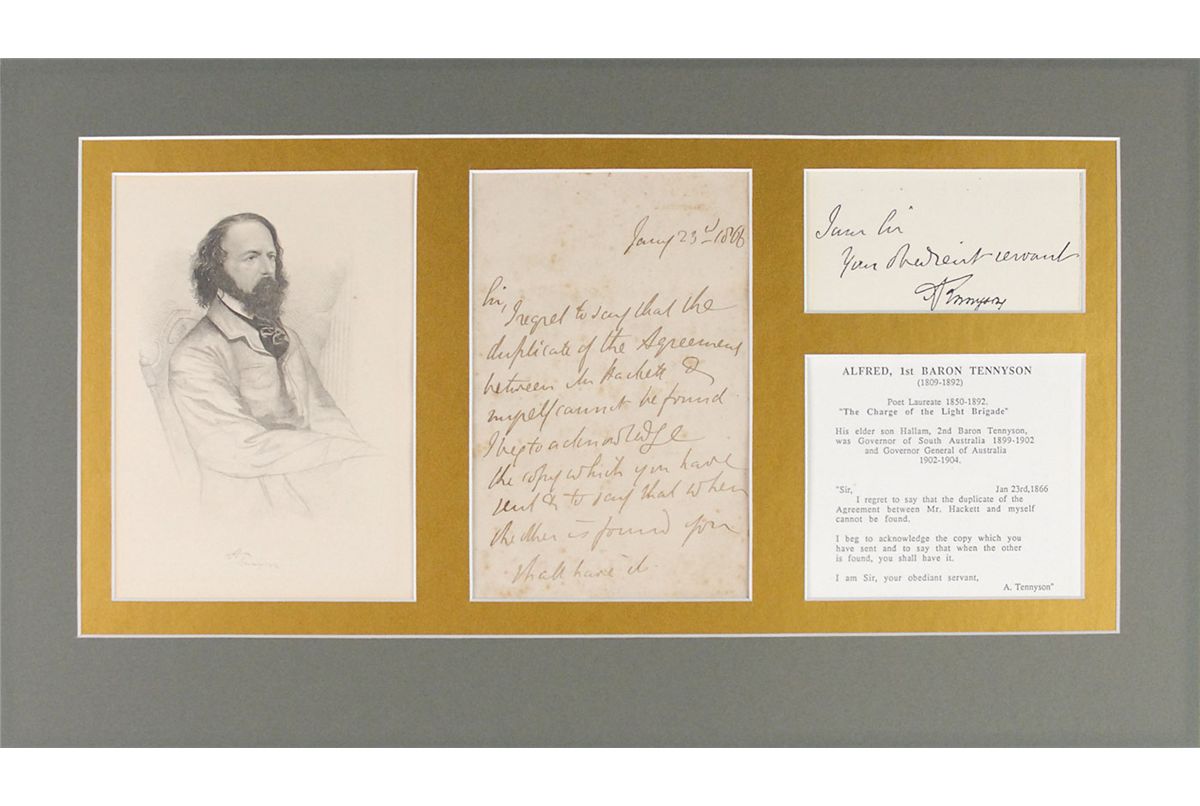 Jany 23rd 1866
Sir,
I regret to say that the
duplicate of the Agreement
between Mr Hackett &
myself cannot be found.
I beg to acknowledge
the copy which you have
sent & to say that when
the other is found you
shall have it.
I am Sir
Your obedient servant
A Tennyson
ALFRED, 1st BARON TENNYSON
(1809-1892)
Poet Laureate 1850-1892.
"The Charge of the Light Brigade"
His elder son Hallam, 2nd Baron Tennyson,
was Governor of South Australia 1899-1902
and Governor General of Australia
1902-1904.
"Sir, Jan 23rd,1866
I regret to say that the duplicate of the
Agreement between Mr. Hackett and myself
cannot be found.
I beg to acknowledge the copy which you
have sent and to say that when the other
is found, you shall have it.
I am Sir, your obediant servant,
A. Tennyson"